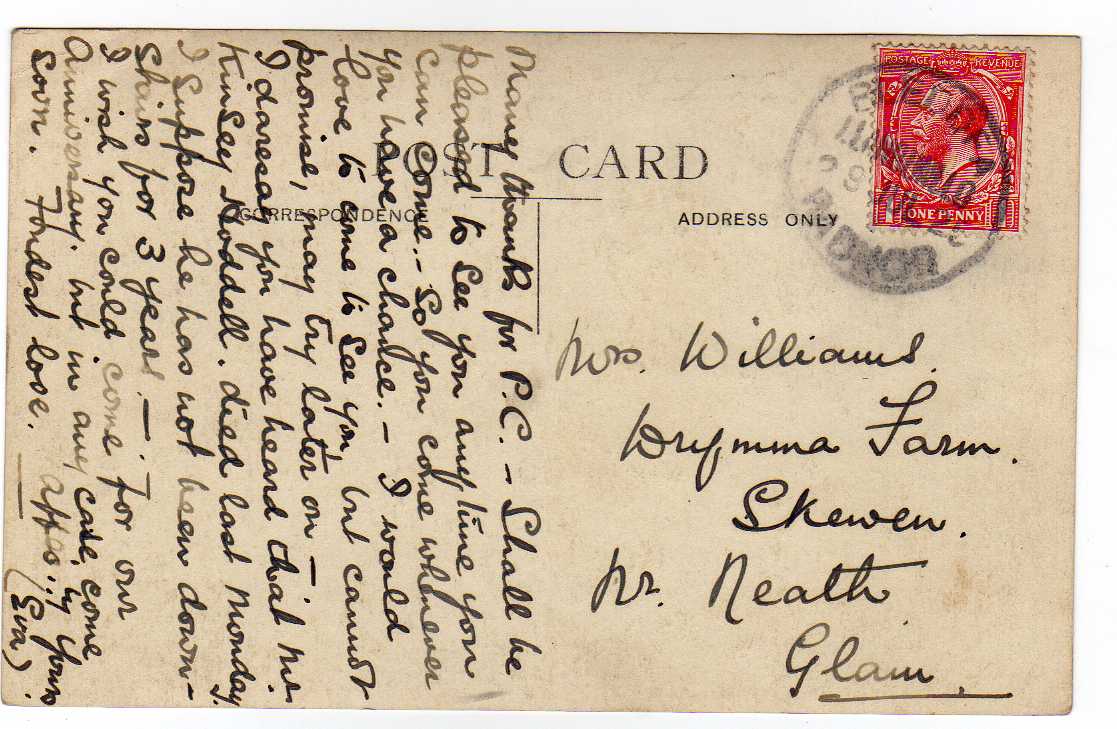 POST CARD
CORRESPONDENCE
ADDRESS ONLY
Many thanks for P.C. – Shall be
pleased to see you any time you
can come. – So you come whenever
you have a chance. – I would
love to come to see you, but cannot
promise, may try later on –
I daresay you have heard that Mr.
Kinsey Hoddell. died last Monday.
I suppose he has not been down-
stairs for 3 years. –
I wish you could come for our
Anniversary. but in any case, come
soon. Fondest love. Affec:ly yours
(Eva).
Mrs. Williams.
Drymma Farm.
Skewen.
Nr. Neath
Glam.
POSTAGE REVENUE
1 ONE PENNY 1
RADNOR